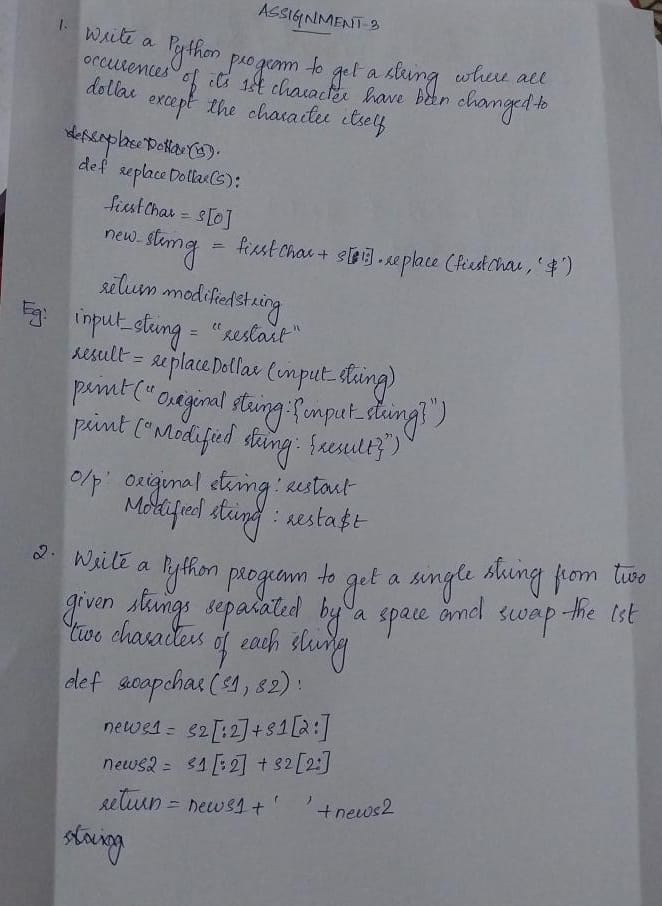 ASSIGNMENT-3
1. Write a Python program to get a string where all
occurences of its 1st character have been changed to
dollar except the character itself
def replaceDollar(s):
firstChar = s[0]
new_string = firstChar + s[1:].replace(firstChar, '$')
return modifiedstring
Eg: input_string = "restart"
result = replaceDollar(input_string)
print("Original string:{input_string}")
print("Modified string: {result}")
O/p: original string: restart
Modified string: resta$t
2. Write a Python program to get a single string from two
given strings separated by a space and swap the 1st
two characters of each string
def swapchar(s1, s2):
news1 = s2[:2]+s1[2:]
news2 = s1[:2] + s2[2:]
return = news1 + ' ' + news2
string